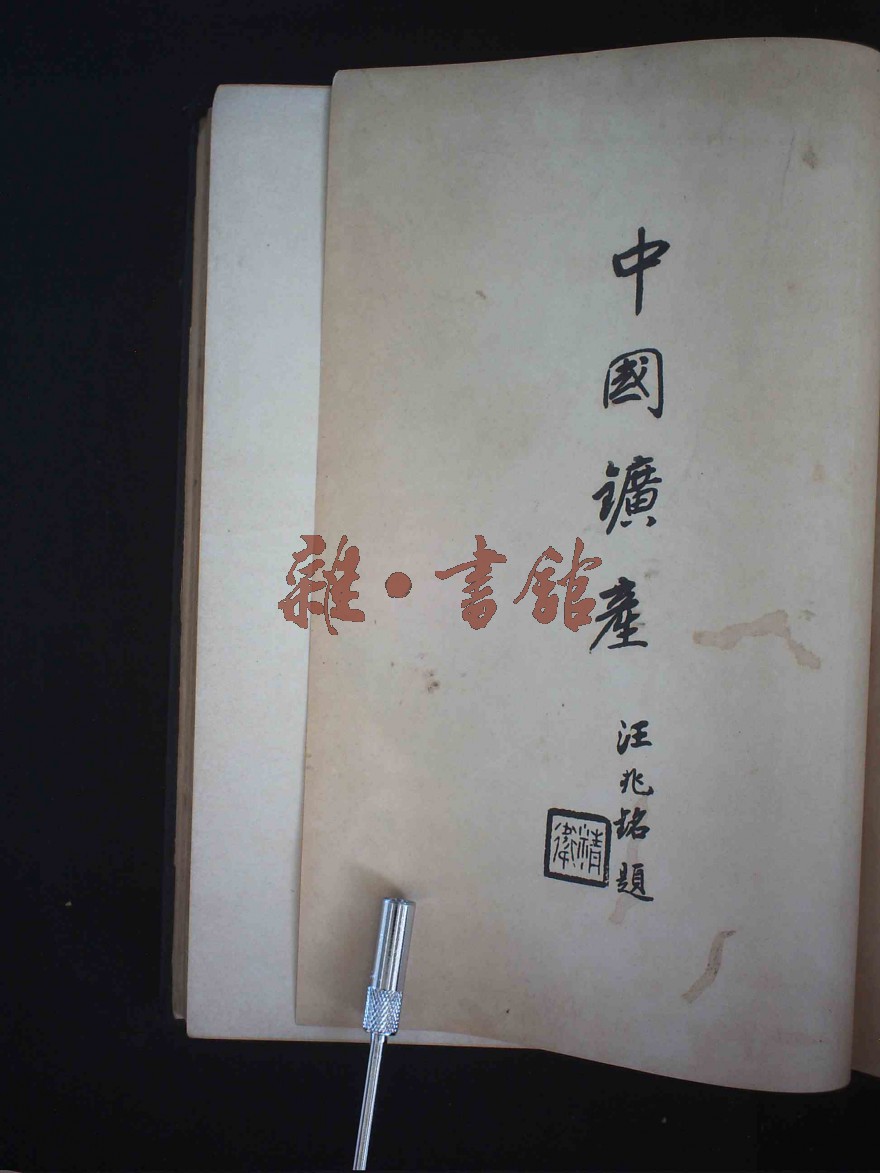 中國鑛產
汪兆銘題
精衛
雜·書館